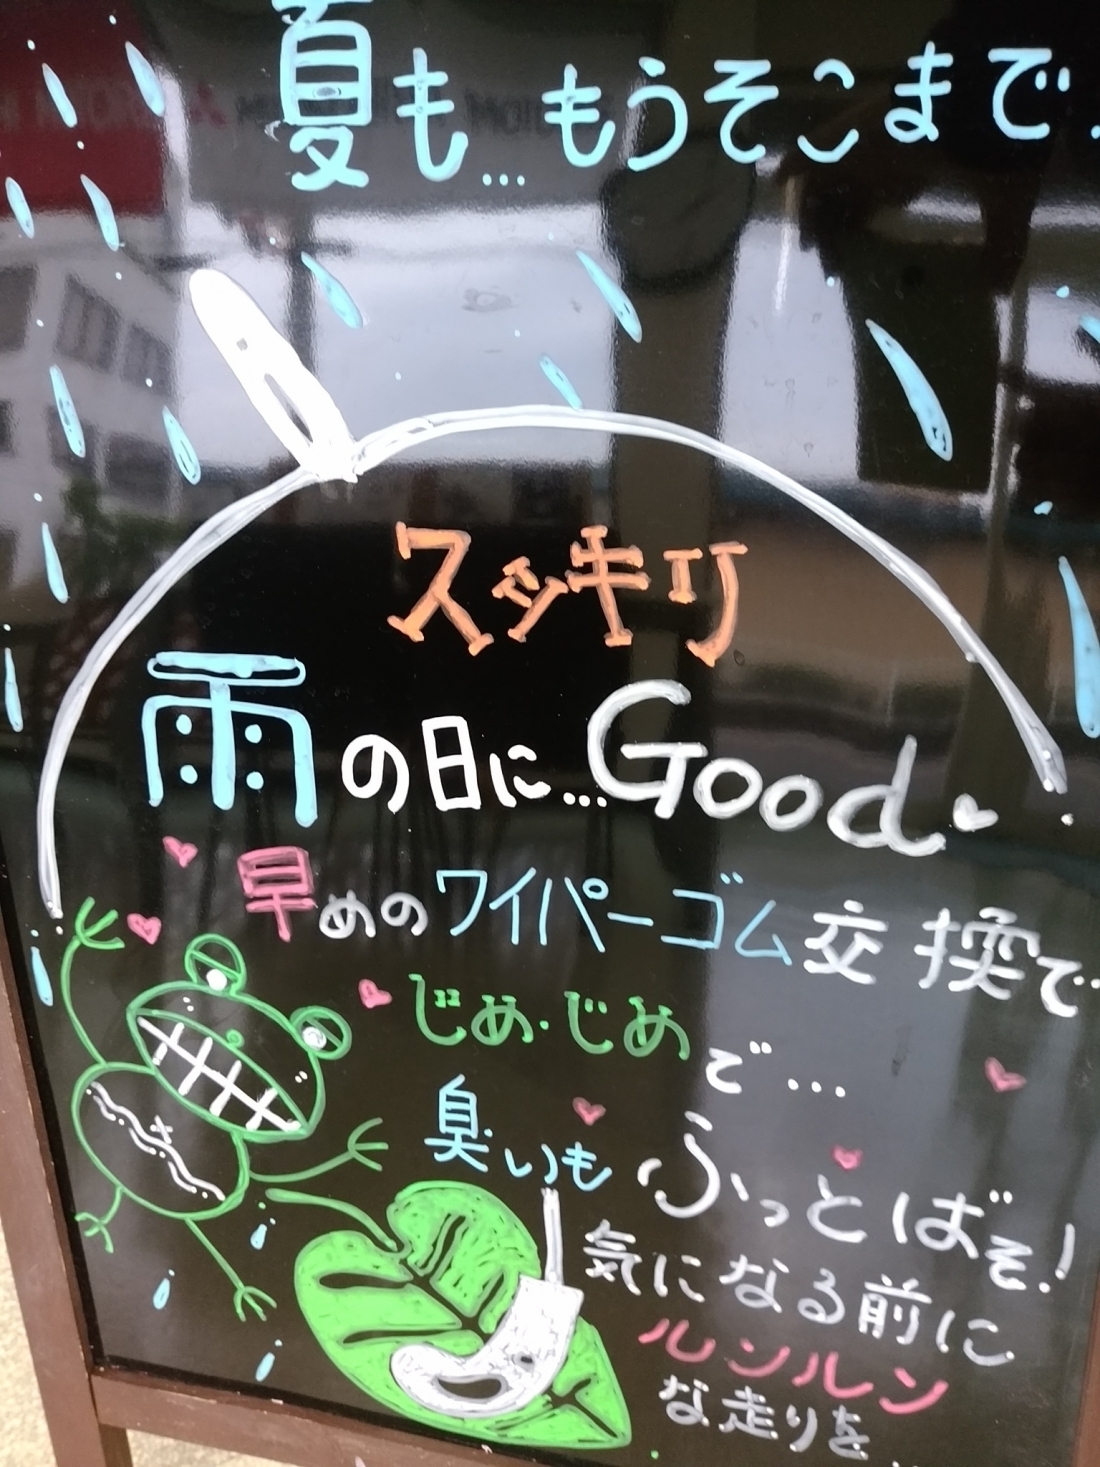 夏も...もうそこまで.
スッキリ
雨の日に...Good
早めのワイパーゴム交換で
じめ.じめで...
臭いもふっとばそ!
気になる前に
ルンルン
な走りを